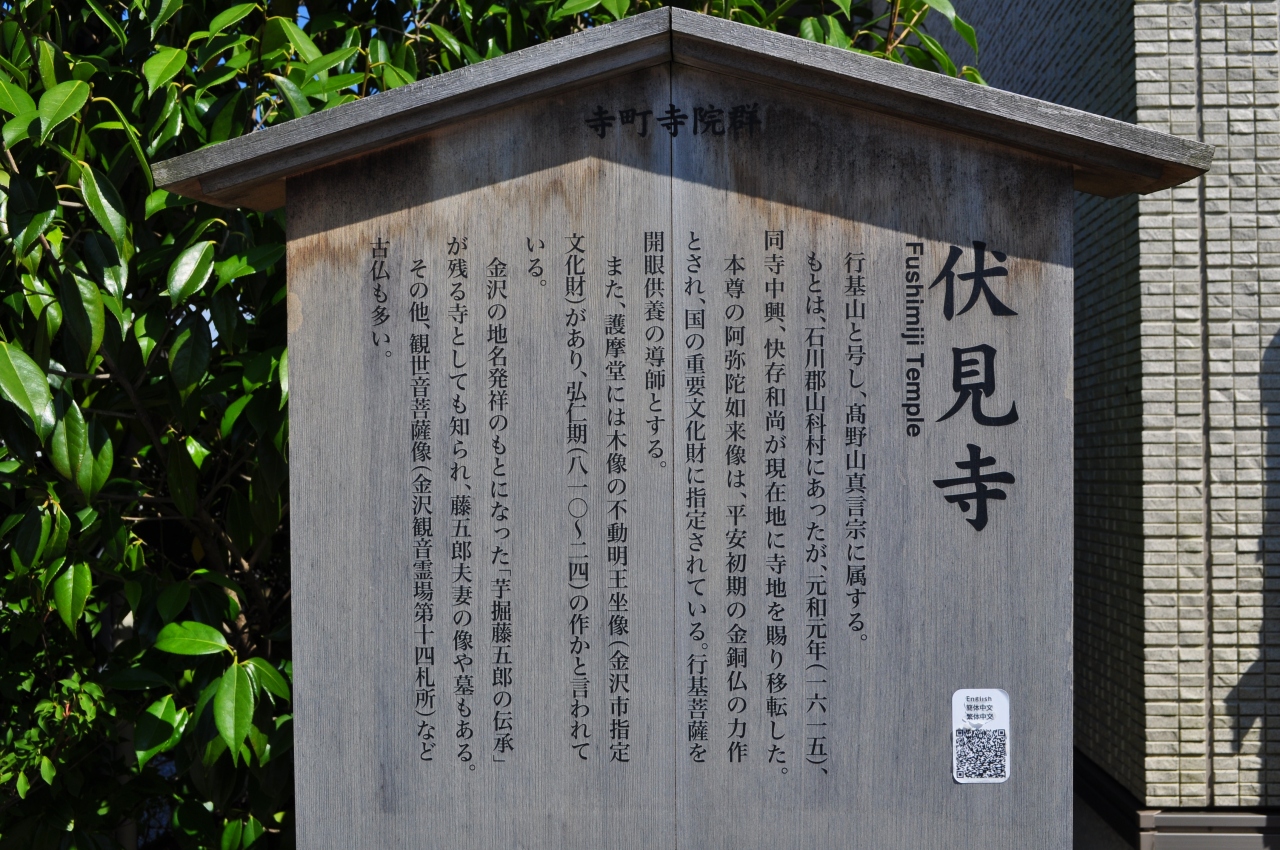 寺町寺院群
伏見寺
Fushimiji Temple
行基山と号し、髙野山真言宗に属する。
もとは、石川郡山科村にあったが、元和元年（一六一五）、
同寺中興、快存和尚が現在地に寺地を賜り移転した。
本尊の阿弥陀如来像は、平安初期の金銅仏の力作
とされ、国の重要文化財に指定されている。行基菩薩を
開眼供養の導師とする。
また、護摩堂には木像の不動明王坐像（金沢市指定
文化財）があり、弘仁期（八一〇〜二四）の作かと言われて
いる。
金沢の地名発祥のもとになった「芋掘藤五郎の伝承」
が残る寺としても知られ、藤五郎夫妻の像や墓もある。
その他、観世音菩薩像（金沢観音霊場第十四札所）など
古仏も多い。
English
簡体中文
繁体中文